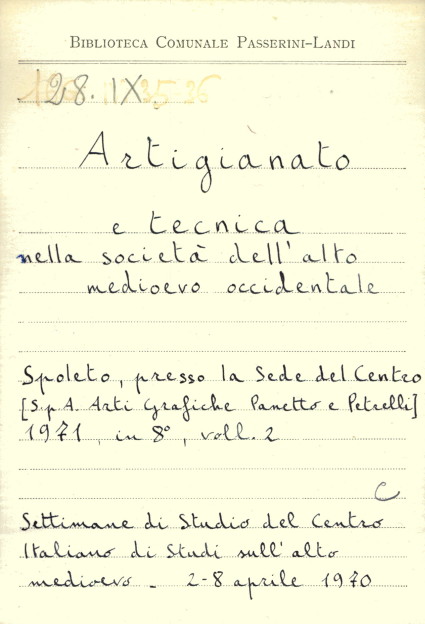 BIBLIOTECA COMUNALE PASSERINI-LANDI
128. IX 35-36
Artigianato
e tecnica
nella società dell'alto
medioevo occidentale
Spoleto, presso la Sede del Centro
[S.p.A. Arti Grafiche Panetto e Petrelli]
1971, in 8°, voll. 2
C
Settimane di Studio del Centro
Italiano di Studi sull'alto
medioevo - 2-8 aprile 1970